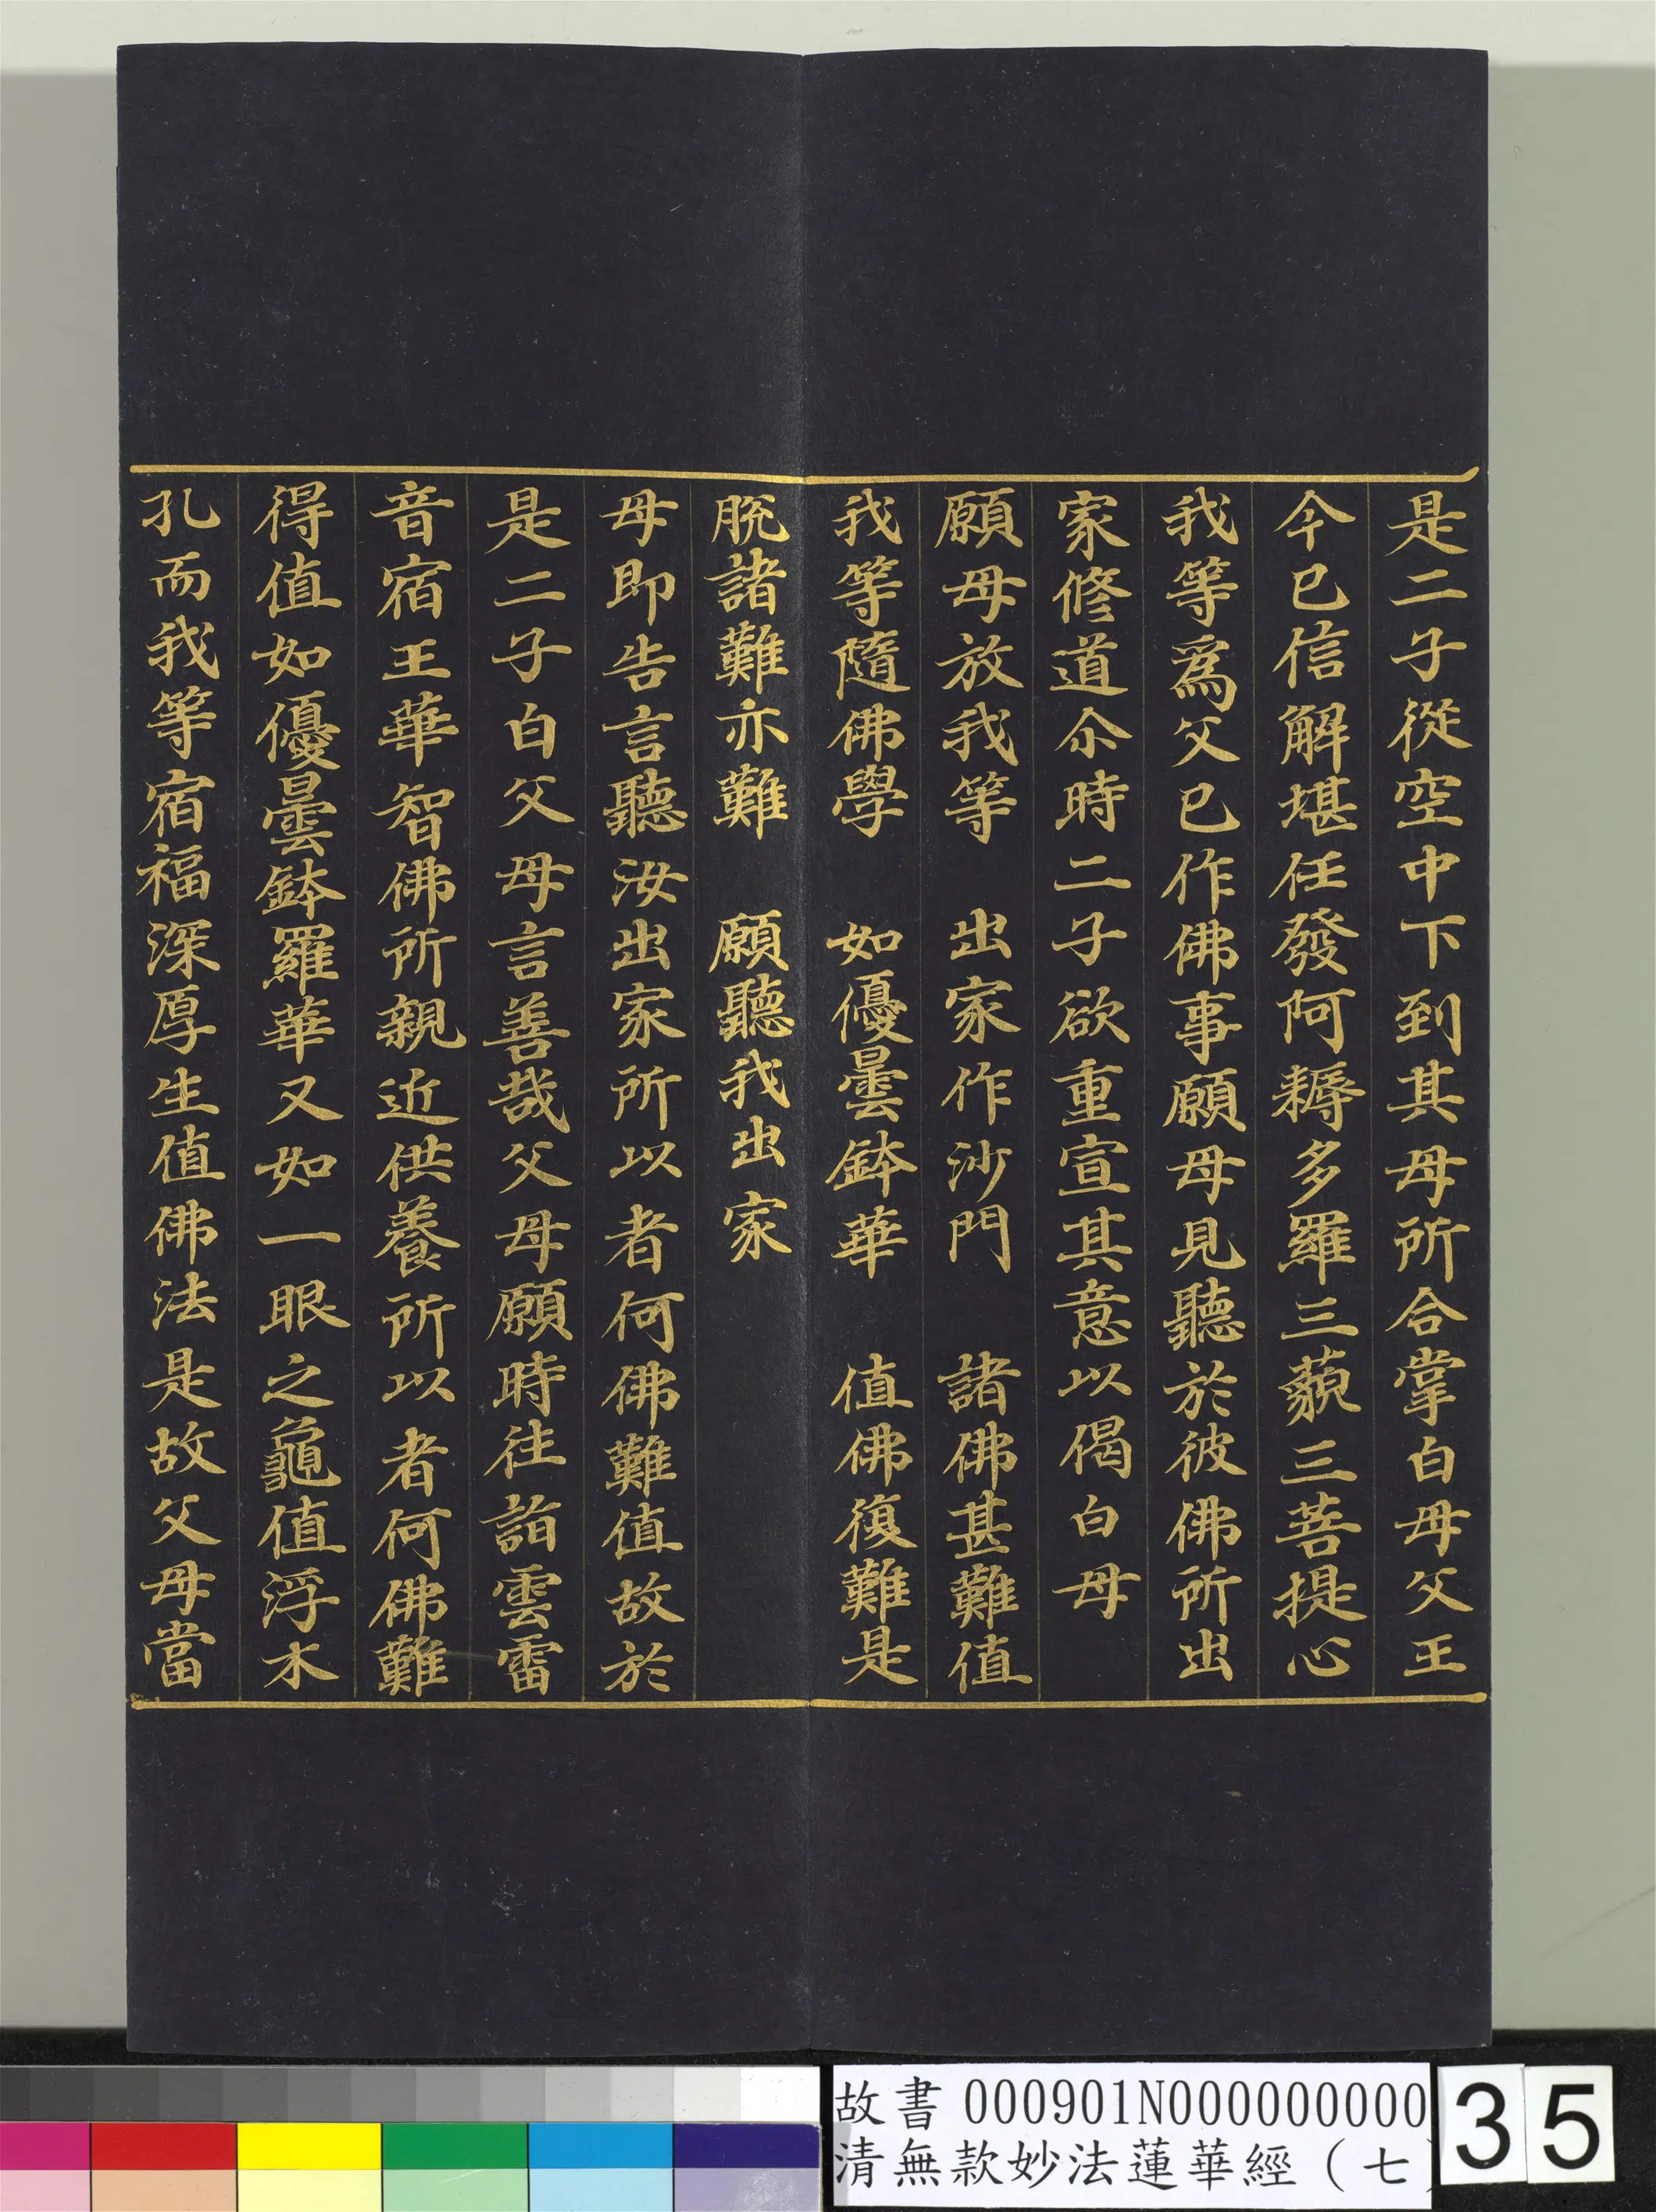 是二子從空中下到其母所合掌白母父王
今已信解堪任發阿耨多羅三藐三菩提心
我等爲父已作佛事願母見聽於彼佛所出
家修道尒時二子欲重宣其意以偈白母
願母放我等　出家作沙門　諸佛甚難值
我等隨佛學　如優曇鉢華　值佛復難是
脫諸難亦難　願聽我出家
母即告言聽汝出家所以者何佛難值故於
是二子白父母言善哉父母願時往詣雲雷
音宿王華智佛所親近供養所以者何佛難
得值如優曇鉢羅華又如一眼之龜值浮木
孔而我等宿福深厚生值佛法是故父母當
故書 000901N000000000
清無款妙法蓮華經（七
35